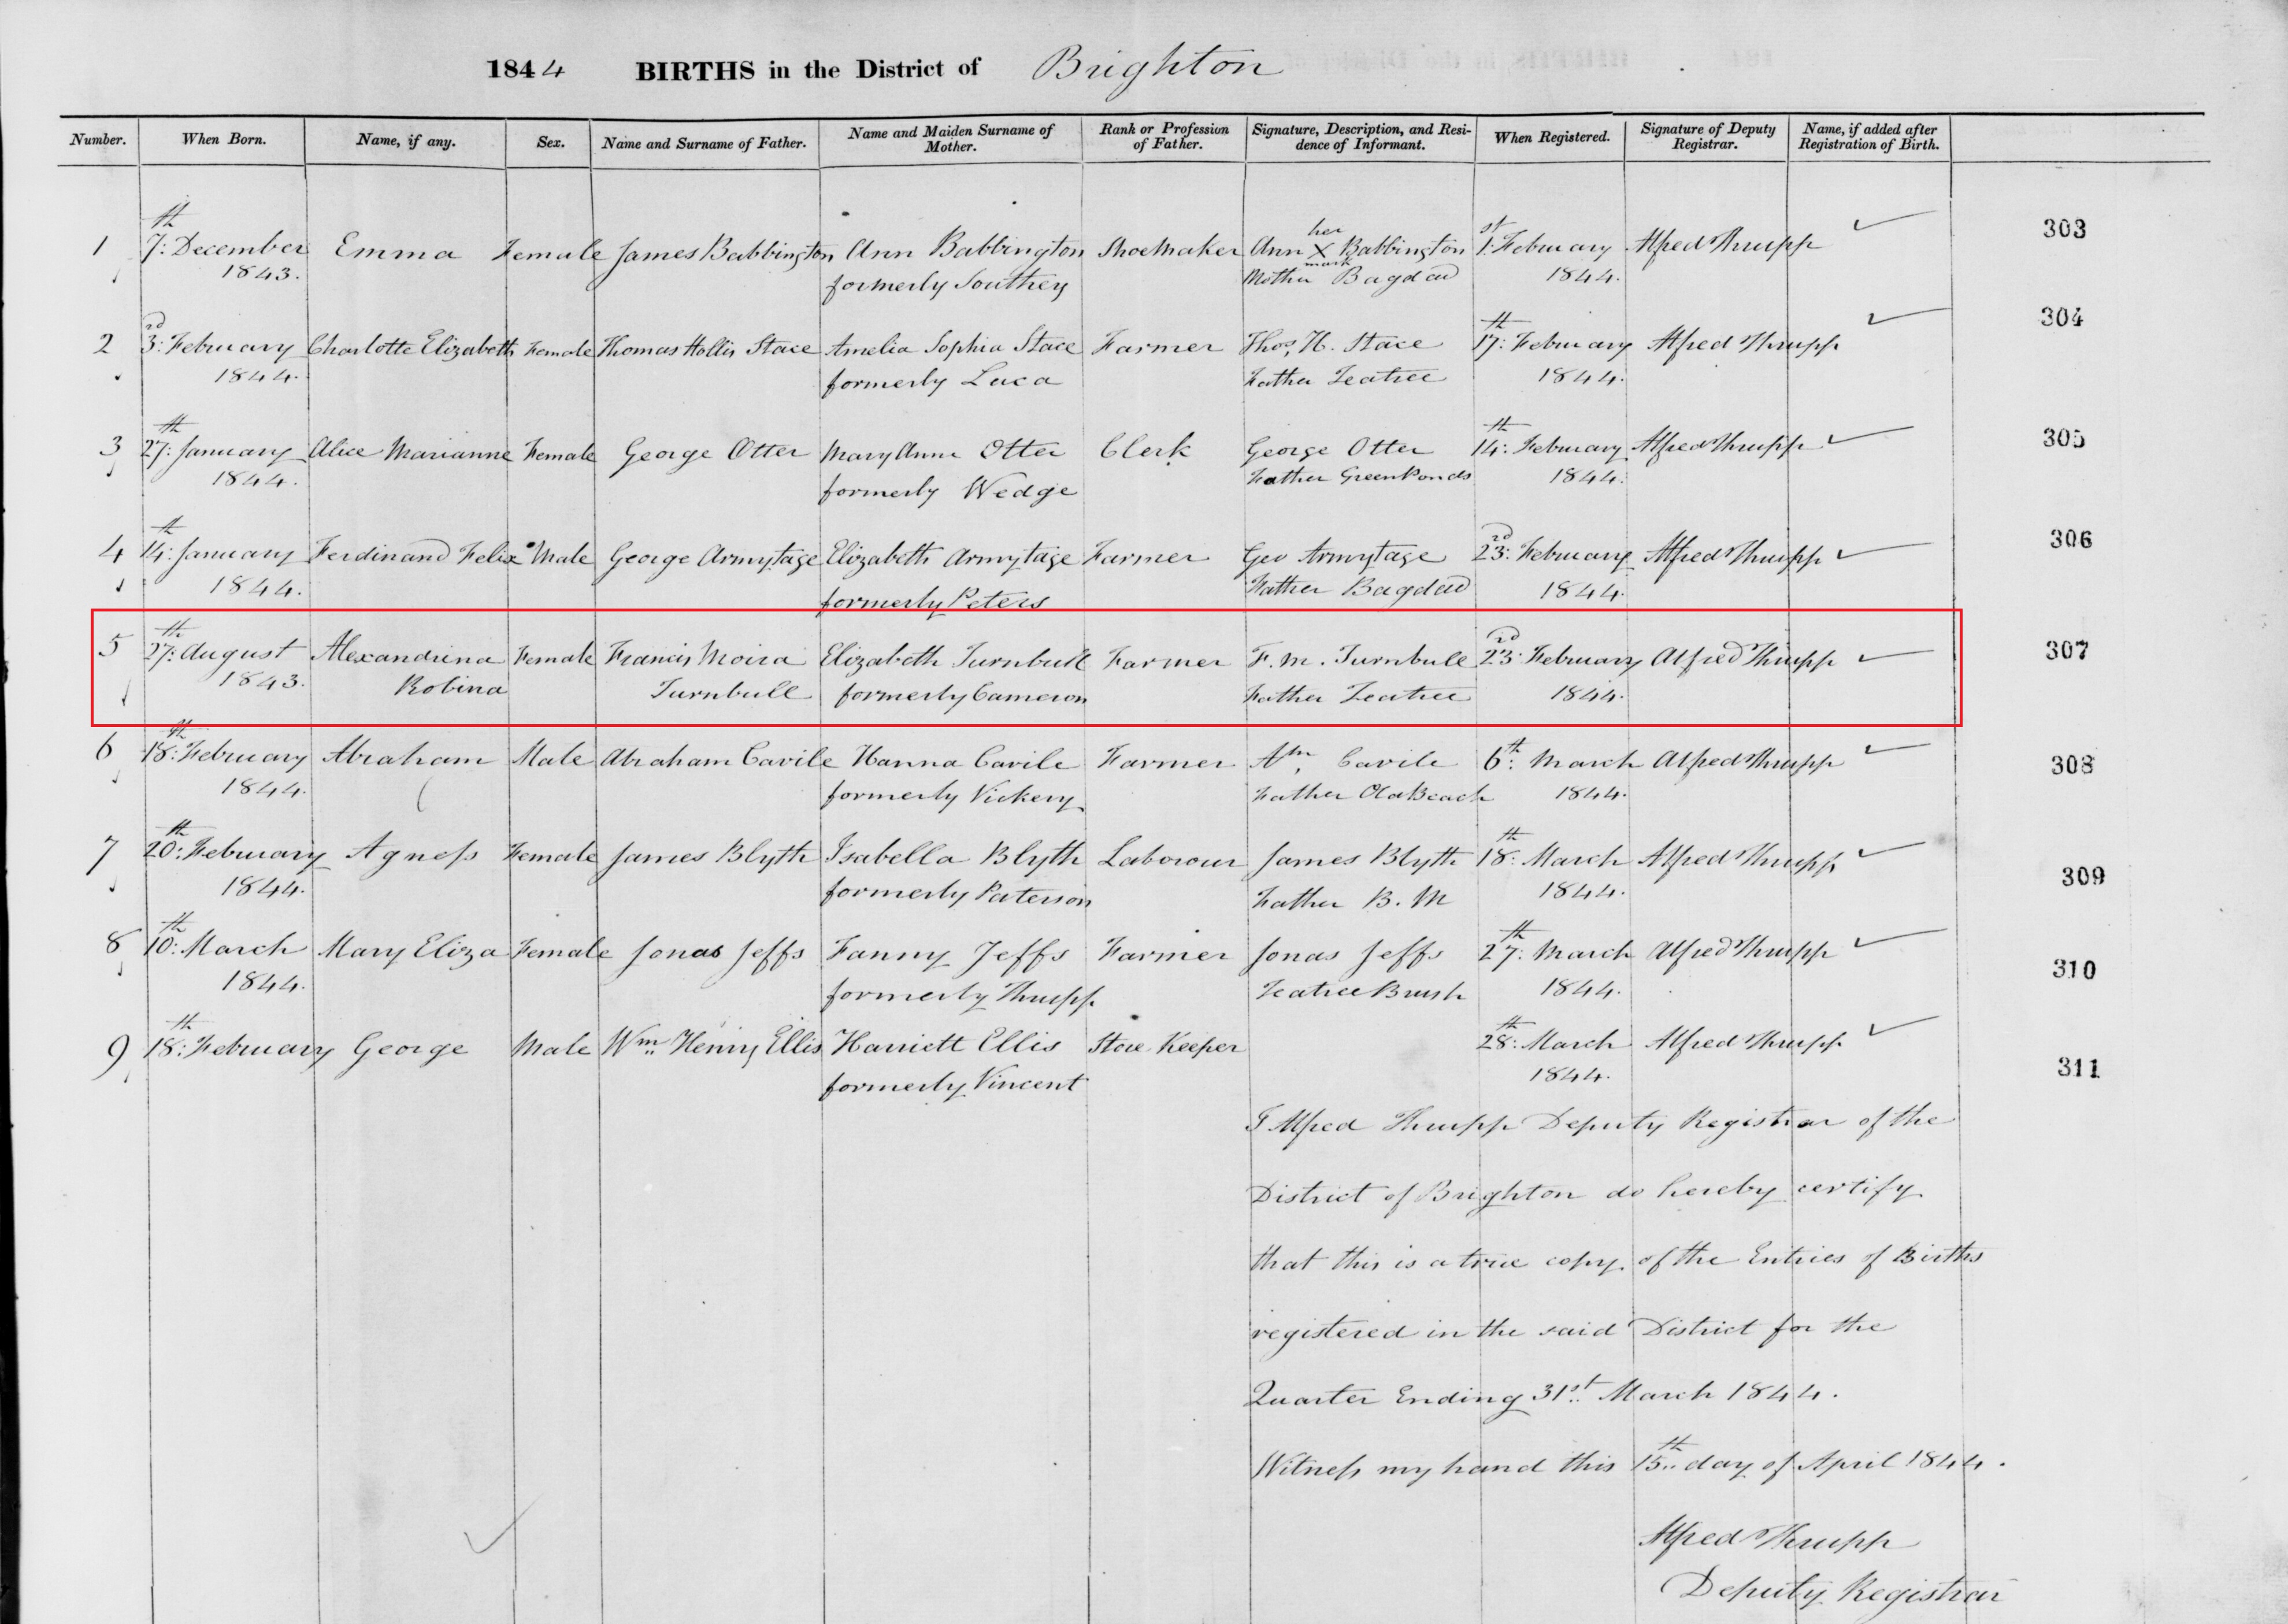 1844 BIRTHS in the District of Brighton
Number. When Born. Name, if any. Sex. Name and Surname of Father. Name and Maiden Surname of Mother. Rank or Profession of Father. Signature, Description, and Residence of Informant. When Registered. Signature of Deputy Registrar. Name, if added after Registration of Birth.
1 7th: December Emma Female James Babbington Ann Babbington Shoemaker Ann her X mark Babbington 1st: February Alfred Thrupp 303
1843. formerly Southey Mother Bagdad 1844.
2 3rd: February Charlotte Elizabeth Female Thomas Hollis Stace Amelia Sophia Stace Farmer Thos. H. Stace 17th: February Alfred Thrupp 304
1844. formerly Luca Father Teatree 1844.
3 27th: January Alice Marianne Female George Otter Mary Anne Otter Clerk George Otter 14th: February Alfred Thrupp 305
1844. formerly Wedge Father Green Ponds 1844.
4 14th: January Ferdinand Felix Male George Armytage Elizabeth Armytage Farmer Geo Armytage 23rd: February Alfred Thrupp 306
1844. formerly Peters Father Bagdad 1844.
5 27th: August Alexandrina Female Francis Moira Elizabeth Turnbull Farmer F. M. Turnbull 23rd: February Alfred Thrupp 307
1843. Robina Turnbull formerly Cameron Father Teatree 1844.
6 18th: February Abraham Male Abraham Cavile Hanna Cavile Farmer Am. Cavile 6th: March Alfred Thrupp 308
1844. formerly Vickery Father Old Beach 1844.
7 20th: February Agness Female James Blyth Isabella Blyth Laborour James Blyth 18th: March Alfred Thrupp 309
1844. formerly Paterson Father B. M 1844.
8 10th: March Mary Eliza Female Jonas Jeffs Fanny Jeffs Farmer Jonas Jeffs 27th: March Alfred Thrupp 310
1844. formerly Thrupp Teatree Brush 1844.
9 18th: February George Male Wm. Henry Ellis Harriett Ellis Store Keeper 28th: March Alfred Thrupp 311
formerly Vincent 1844.
I Alfred Thrupp Deputy Registrar of the
District of Brighton do hereby certify
that this is a true copy of the Entries of Births
registered in the said District for the
Quarter Ending 31st. March 1844.
Witness my hand this 15th.. day of April 1844.
Alfred Thrupp
Deputy Registrar